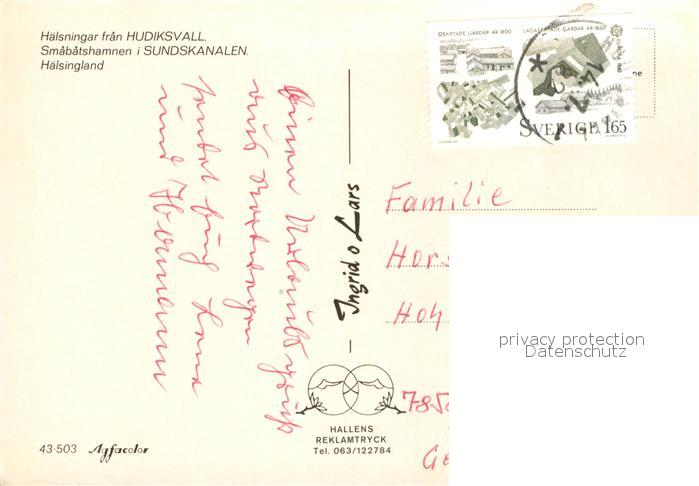 Hälsningar från HUDIKSVALL.
Småbåtshamnen i SUNDSKANALEN.
Hälsingland
OSKIFTADE GÅRDAR ÅR 1800 LAGASKIFTADE GÅRDAR ÅR 1860
EUROPA
SVERIGE 165
Einen Urlaubsgruß
aus
sendet Euch
und Hermann
Ingrid o Lars
Familie
Hors
Hoh
785
Ge
privacy protection
Datenschutz
HALLENS
REKLAMTRYCK
Tel. 063/122784
43-503 Agfacolor